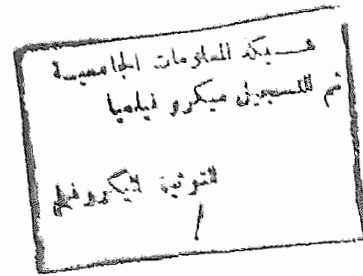 شبكة المعلومات الجامعية
تم التسجيل ميكرو فيلميا
التوثيق الميكروفيلم